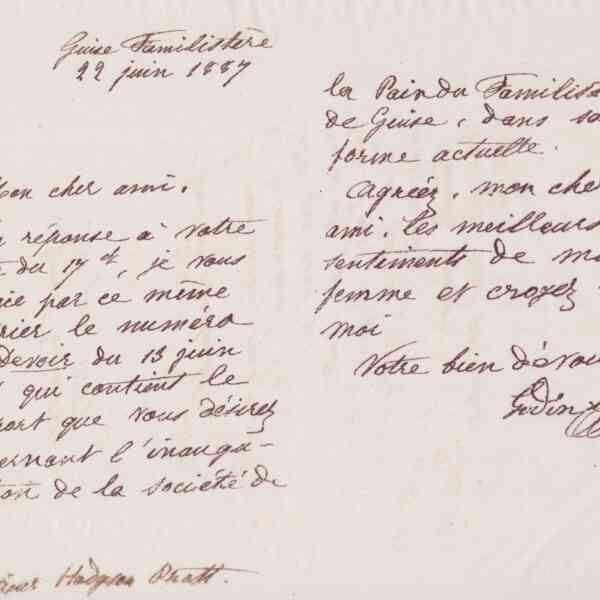 Guise Familistère
22 juin 1887
on cher ami.
réponse à votre
du 17 ct, je vous
par ce même
rier le numéro
Devoir du 13 juin
qui contient le
port que vous désirez
ernant l'inaugu-
tion de la société de
Hodgson Pratt.
la Paix du Familis
de Guise, dans sa
forme actuelle.
Agréez, mon cher
ami, les meilleurs
sentiments de ma
femme et croyez
moi
Votre bien dévou
Godin